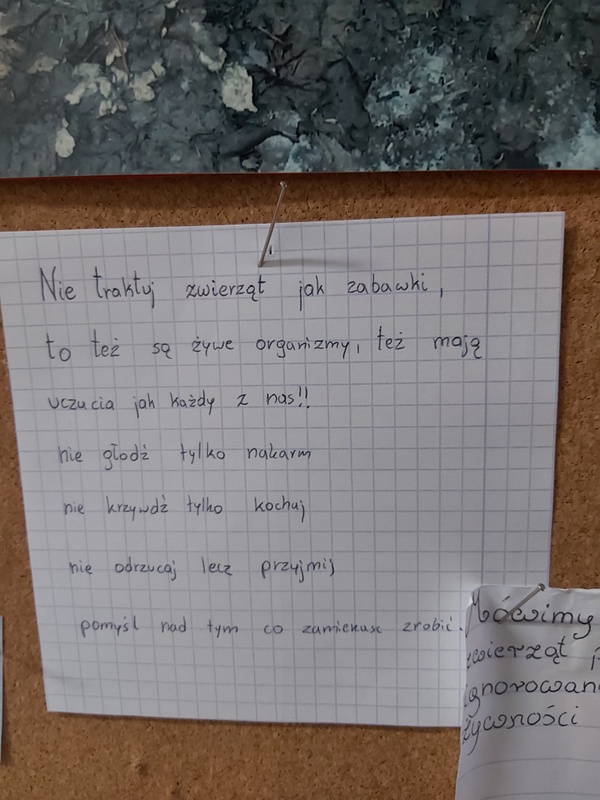 Nie traktuj zwierząt jak zabawki,
to też są żywe organizmy, też mają
uczucia jak każdy z nas!!
nie głodź tylko nakarm
nie krzywdź tylko kochaj
nie odrzucaj lecz przyjmij
pomyśl nad tym co zamierzasz zrobić.
Mówimy
zwierząt
ignorowan
żywności